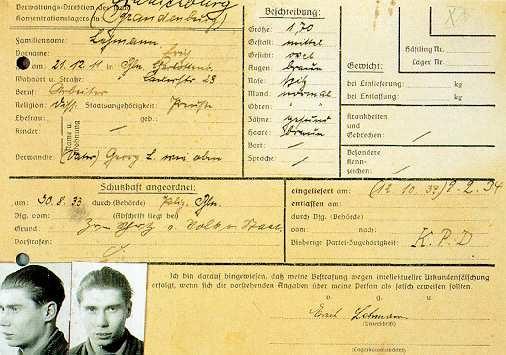 Verwaltungs-Direktion des staatl.
Konzentrationslagers in (Brandenburg)
Familienname Lohmann
Vorname Erich
am 21.12.11 in Bln. Charlottenb.
Wohnort u. Straße: 23
Beruf: Arbeiter
Religion: Diss. Staatsangehörigkeit: Preuße
Ehefrau: geb.:
Kinder Name u. Wohnung /
Verwandte (Vater) Georg L. wie oben
Beschreibung:
Größe: 1,70
Gestalt: mittel
Gesicht: oval
Augen: braun
Nase: spitz
Mund: normal
Ohren: "
Zähne: gesund
Haare: braun
Bart: /
Sprache: /
X
Häftling Nr.
Lager Nr.
Gewicht:
bei Einlieferung: kg
bei Entlassung: kg
Krankheiten
und
Gebrechen: /
Besondere
Kennzeichen: /
Schutzhaft angeordnet:
am 30.8.33 durch (Behörde) Poliz. Bln.
Vfg. vom: (Abschrift liegt bei)
Grund Zum Schutz v. Volk u. Staat.
Vorstrafen:
eingeliefert am (12.10.33) 9.2.34
entlassen am
durch Vfg. (Behörde)
vom: nach:
Bisherige Partei-Zugehörigkeit: K.P.D
Ich bin darauf hingewiesen, daß meine Bestrafung wegen intellektueller Urkundenfälschung
erfolgt, wenn sich die vorstehenden Angaben über meine Person als falsch erweisen sollten.
v. g. u.
Erich Lohmann
(Unterschrift)
(Lagerkommandant)